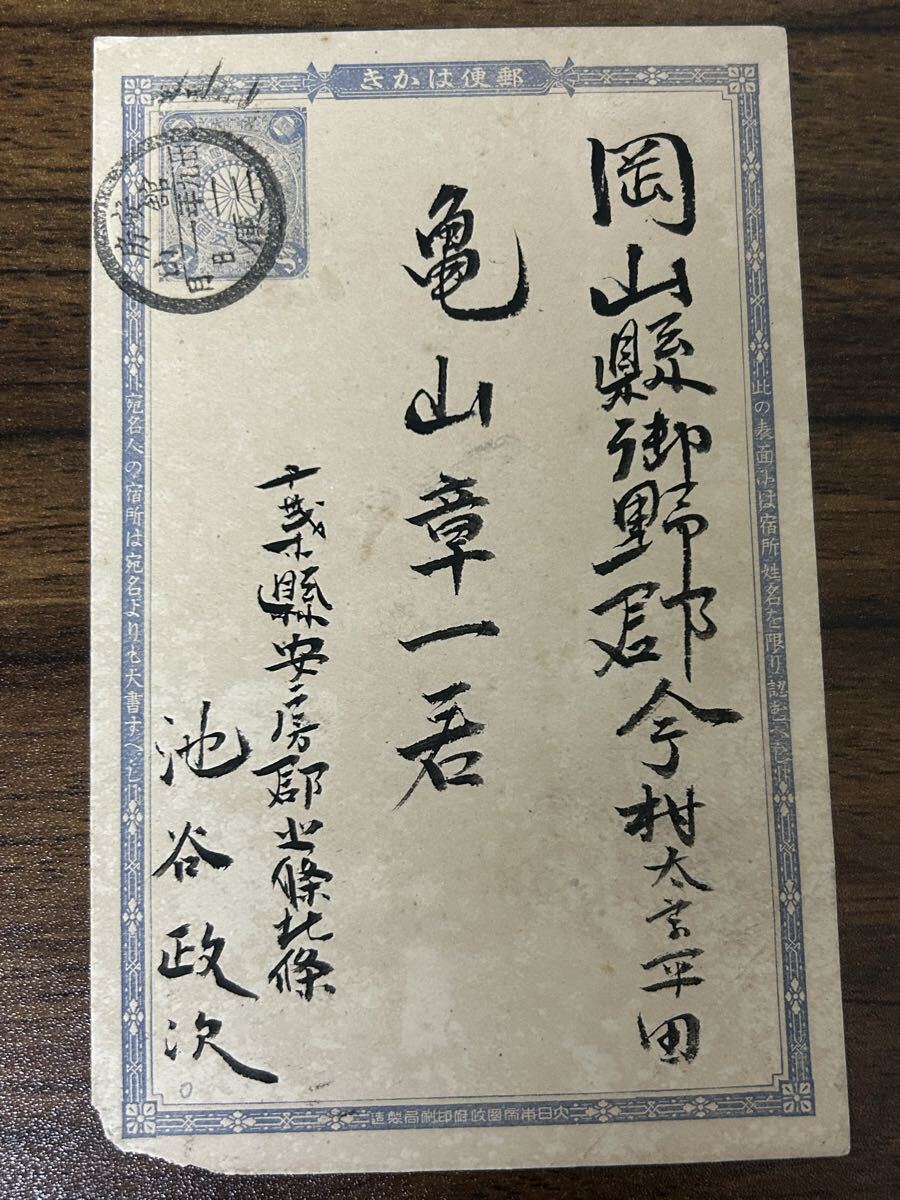 郵便はかき
此の表面には宿所姓名を限り認むへし
岡山縣御野郡今村大字平田
亀山章一君
千葉縣安房郡北條北條
池谷政次
宛名人の宿所は宛名よりも大書すへし
安房
舘山
一月
日
便
大日本帝國政府印刷局製造